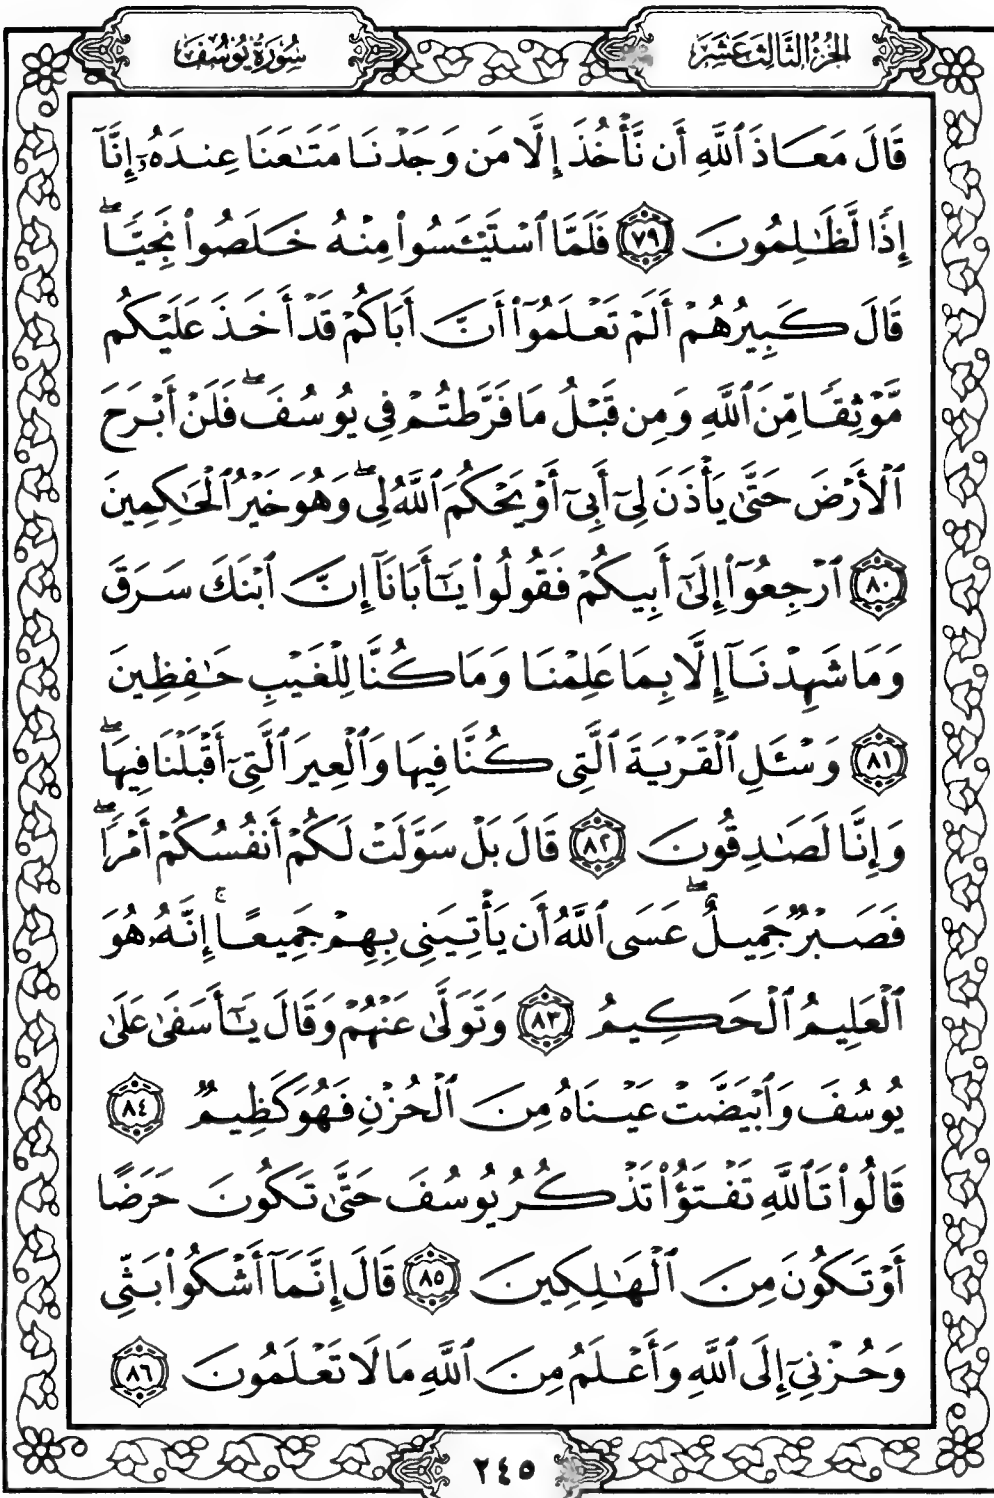 الجزء الثالث عشر
سورة يوسف
قَالَ مَعَاذَ ٱللَّهِ أَن نَّأْخُذَ إِلَّا مَن وَجَدْنَا مَتَـٰعَنَا عِندَهُۥٓ إِنَّآ
إِذًا لَّظَـٰلِمُونَ ٧٩ فَلَمَّا ٱسْتَيْـَٔسُوا۟ مِنْهُ خَلَصُوا۟ نَجِيًّاۖ
قَالَ كَبِيرُهُمْ أَلَمْ تَعْلَمُوٓا۟ أَنَّ أَبَاكُمْ قَدْ أَخَذَ عَلَيْكُم
مَّوْثِقًا مِّنَ ٱللَّهِ وَمِن قَبْلُ مَا فَرَّطتُمْ فِى يُوسُفَۖ فَلَنْ أَبْرَحَ
ٱلْأَرْضَ حَتَّىٰ يَأْذَنَ لِىٓ أَبِىٓ أَوْ يَحْكُمَ ٱللَّهُ لِىۖ وَهُوَ خَيْرُ ٱلْحَـٰكِمِينَ
٨٠ ٱرْجِعُوٓا۟ إِلَىٰٓ أَبِيكُمْ فَقُولُوا۟ يَـٰٓأَبَانَآ إِنَّ ٱبْنَكَ سَرَقَ
وَمَا شَهِدْنَآ إِلَّا بِمَا عَلِمْنَا وَمَا كُنَّا لِلْغَيْبِ حَـٰفِظِينَ
٨١ وَسْـَٔلِ ٱلْقَرْيَةَ ٱلَّتِى كُنَّا فِيهَا وَٱلْعِيرَ ٱلَّتِىٓ أَقْبَلْنَا فِيهَاۖ
وَإِنَّا لَصَـٰدِقُونَ ٨٢ قَالَ بَلْ سَوَّلَتْ لَكُمْ أَنفُسُكُمْ أَمْرًاۖ
فَصَبْرٌ جَمِيلٌۖ عَسَى ٱللَّهُ أَن يَأْتِيَنِى بِهِمْ جَمِيعًاۚ إِنَّهُۥ هُوَ
ٱلْعَلِيمُ ٱلْحَكِيمُ ٨٣ وَتَوَلَّىٰ عَنْهُمْ وَقَالَ يَـٰٓأَسَفَىٰ عَلَىٰ
يُوسُفَ وَٱبْيَضَّتْ عَيْنَاهُ مِنَ ٱلْحُزْنِ فَهُوَ كَظِيمٌ ٨٤
قَالُوا۟ تَٱللَّهِ تَفْتَؤُا۟ تَذْكُرُ يُوسُفَ حَتَّىٰ تَكُونَ حَرَضًا
أَوْ تَكُونَ مِنَ ٱلْهَـٰلِكِينَ ٨٥ قَالَ إِنَّمَآ أَشْكُوا۟ بَثِّى
وَحُزْنِىٓ إِلَى ٱللَّهِ وَأَعْلَمُ مِنَ ٱللَّهِ مَا لَا تَعْلَمُونَ ٨٦
٢٤٥